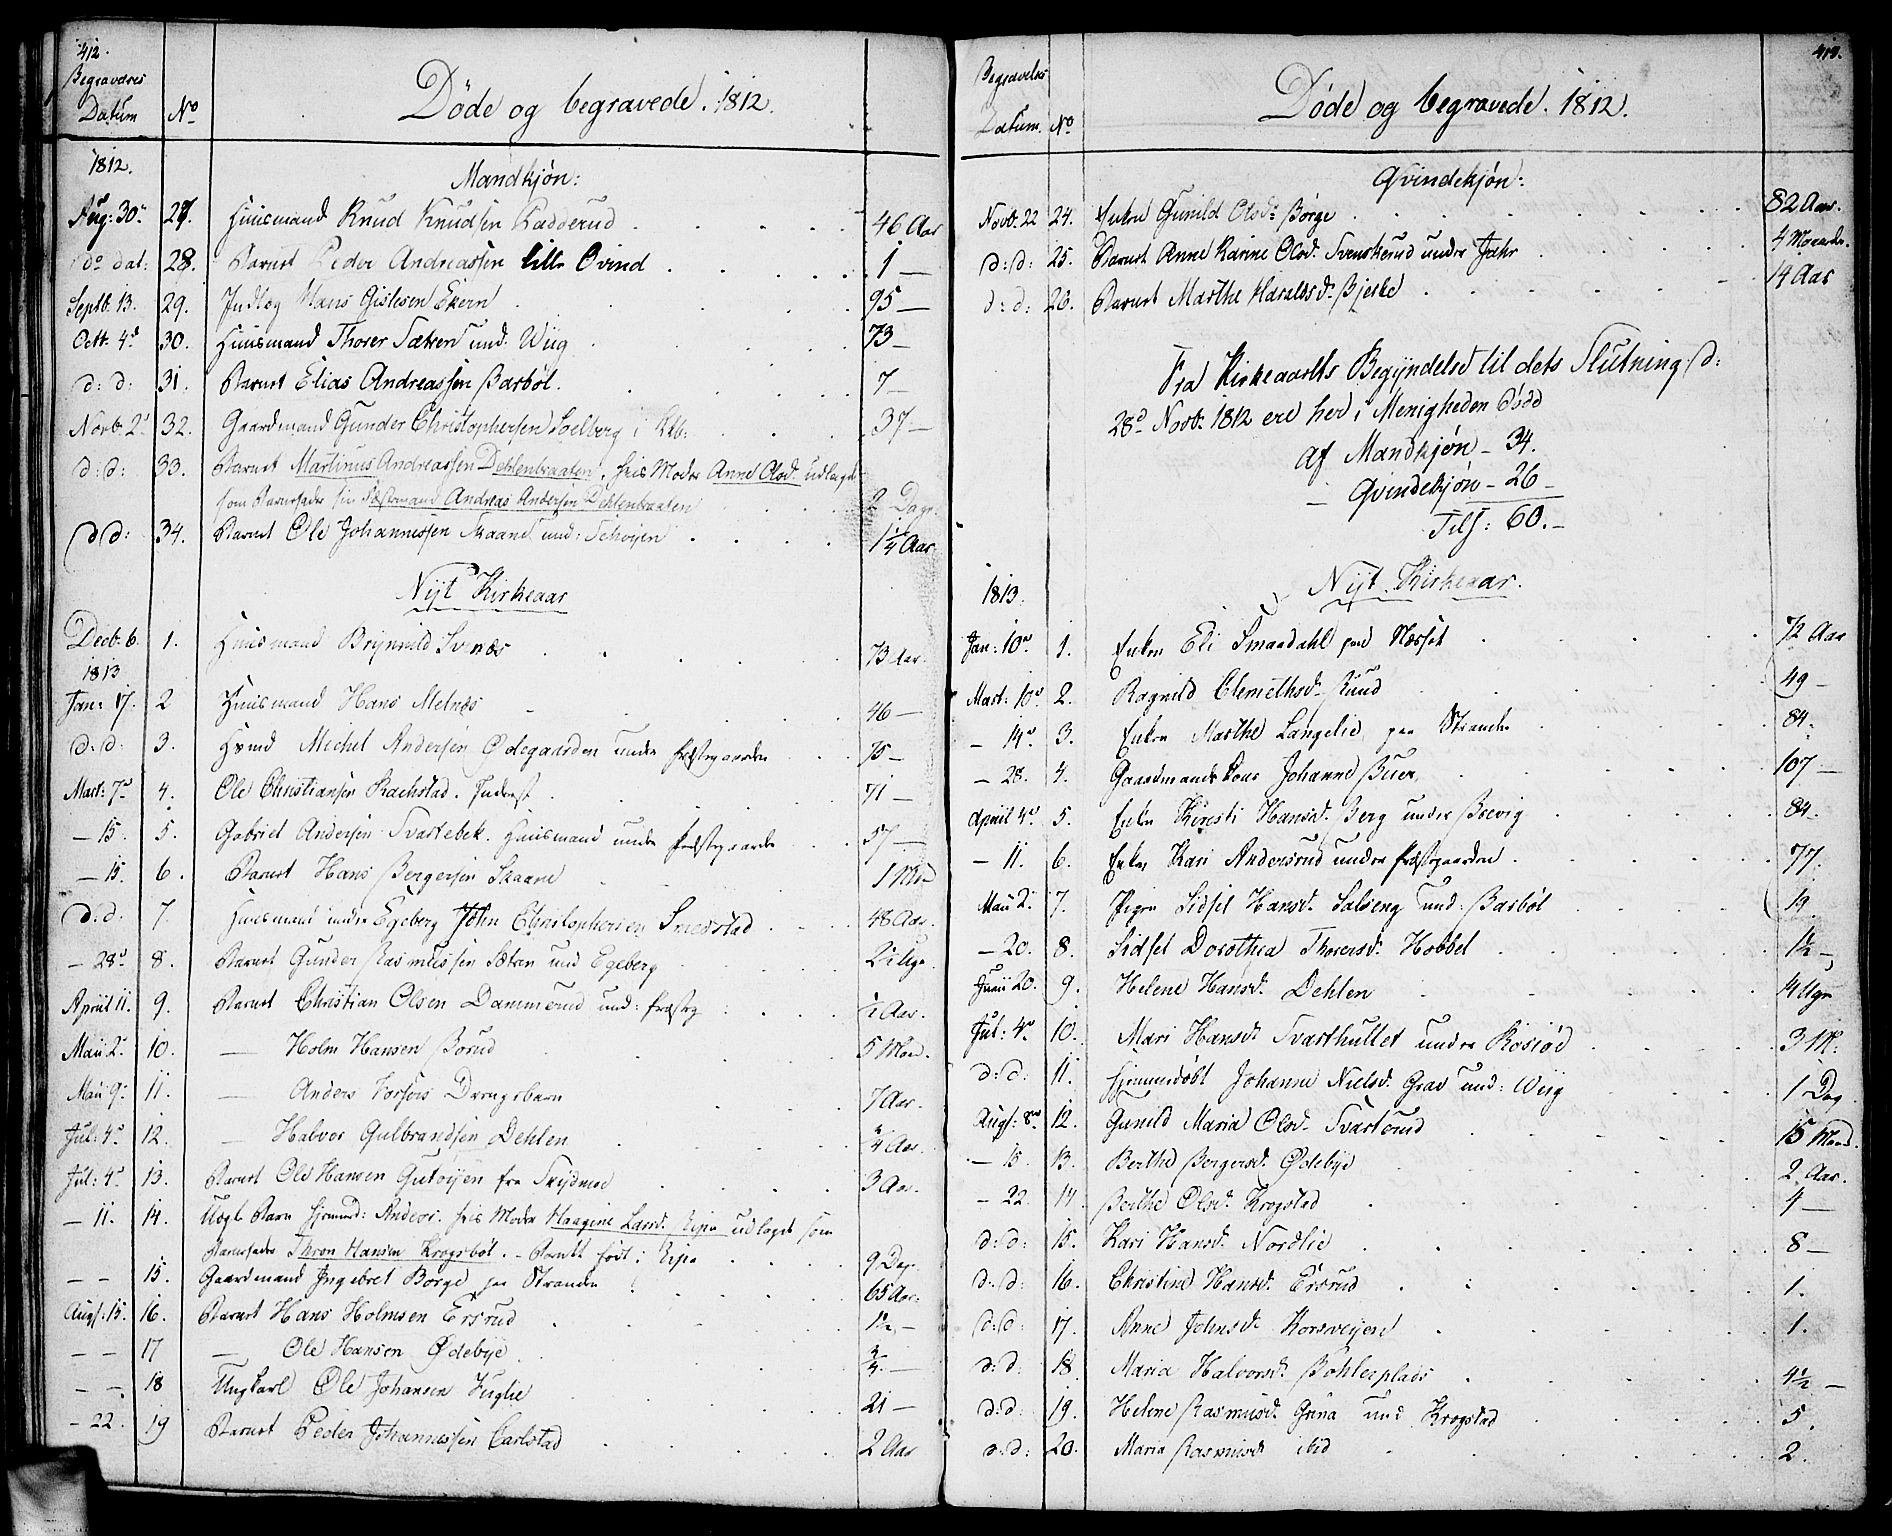 412.
Begravelses
Datum No
Døde og begravede. 1812.
1812.
Mandkjøn:
Aug: 30te 27. Huusmand Knud Knudsen Padderud 46 Aar
do dat: 28. Barnet Peder Andreassen lille Qvind 1 —
Septb. 13. 29. Indlæg Hans Gislesen Ekern 95 —
Octb. 4d 30. Huusmand Thorer Sætren und. Wiig 73 —
d: d: 31. Barnet Elias Andreassen Barbøl. 7 —
Novb. 2d 32. Gaardmand Gunder Christophersen Soelberg i 37 —
d: d: 33. Barnet Martinus Andreassen Dehlenbraaten, hvis Moder Anne Olsd. udlagde
som Barnefader sin Fæstemand Andreas Andersen Dehlenbraaten 2 Dage.
d: d: 34. Barnet Ole Johannessen Skaane und: Schøyen 1 1/4 Aar
Nyt Kirkeaar
Decb. 6. 1. Huusmand Brynnild Svnæs 73 Aar.
1813
Jan: 17. 2 Huusmand Hans Melnæs 46 —
d: d: 3. Michel Andersen Ødegaarden under Præstegaarden 75 —
Mart: 7d 4. Ole Christiansen Rachstad. Inderst 71 —
— 15. 5. Gabriel Andersen Svartebek. Huusmand under Præstegaarden 57 —
— 15. 6. Barnet Hans Bergersen Skaane 1
d: d: 7. Huusmand under Egeberg John Christophersen Smedstad 48 Aar.
— 28d 8. Barnet Gunder Rasmussen Sætren und Egeberg 2 Uge.
April 11. 9. Barnet Christian Olsen Dammerud und: Præstg 1/2 Aar.
Maii 2. 10. — Holm Hansen Borud 5 Maan.
Maii 9. 11. — Anders Drengebarn 7 Aar.
Jul: 4d 12. — Halvor Gulbrandsen Dehlen /4 Aar.
Jul: 4d 13. Barnet Ole Hansen Gutøyen fra Skydmoe 3 Aar.
— 11. 14. Uægt Barn hjemmd: Anders. hvis Moder Haagine Larsd. Ripe udlagde som
Barnefader Thron Hansen Krogsbøl. – Barnet født i Ripe 9 Dage.
— — 15. Gaardmand Ingebret Børge paa Stranden 65 Aar.
Augs: 15. 16. Barnet Hans Holmsen Ersrud 1 1/2 —
— — 17 — Ole Hansen Ødebye 3/4. —
— — 18 Ungkarl Ole Johansen Fuglie 21 —
— 22. 19 Barnet Peder Johannessen Carlstad 2 Aar
413.
Begravelses
Datum. No
Døde og begravede. 1812.
Qvindekjøn:
Novb. 22 24. Enken Gunild Olsd. Børge 82 Aar.
d: d: 25. Barnet Anne Karine Olsd. Svenskerud under Jahr 4 Maaneder.
d: d: 26. Barnet Marthe Haraldsd. Bjerke 14 Aar
Fra Kirkeaarets Begyndelse til dets Slutning d:
28d Novb. 1812 ere her i Menigheden døde
Af Mandkjøn – 34.
— Qvindekjøn – 26 —
Tils: 60. —
Nyt Kirkeaar.
1813.
Jan: 10d 1. Enken Eli Smaadahl paa Næsset 72 Aar
Mart: 10d 2. Ragnild Clemethsd. Ruud 49 —
— 14d 3. Enken Marthe Langelie paa Stranden 84.
— 28. 4. Gaardmands Kone Johanne Buer 107 —
April 4d 5. Enken Kiersti Hansd. Berg under Boevig 84.
— 11. 6. Enken Kari Andersrud under Præstegaarden 77.
Maii 2. 7. Pigen Sidsel Hansd. Salseng und: Barbøl 19.
— 20. 8. Sidsel Dorothea Thorersd. Hobbel 1 1/2 —
Junii 20. 9. Helene Hansd. Dehlen 14 Ugr
Jul: 4d 10. Mari Hansd. Svarthullet under Rosiøe 3 M:
d: d: 11. Hjemmedøbt Johanne Nielsd. Grav und: Wiig 1 Dag.
Augs: 8de 12. Gunild Maria Olsd. Svarterud 15 Maand.
— 15 13. Berthe Bergersd. Ødebye 2 Aar.
— 22 14 Berthe Olsd. Krogstad 4 —
d: d: 15. Kari Hansd. Nordlie 8 —
d: d: 16. Christine Hansd. Ersrud 1.
d: d: 17. Anne Johnsd. Korsveyen 1.
d: d: 18 Maria Halvorsd. Bøhlerplads 4 1/2 —
d: d: 19. Helene Rasmusd. Grina und Krogstad 5.
d: d: 20. Maria Rasmusd. ibid 2.